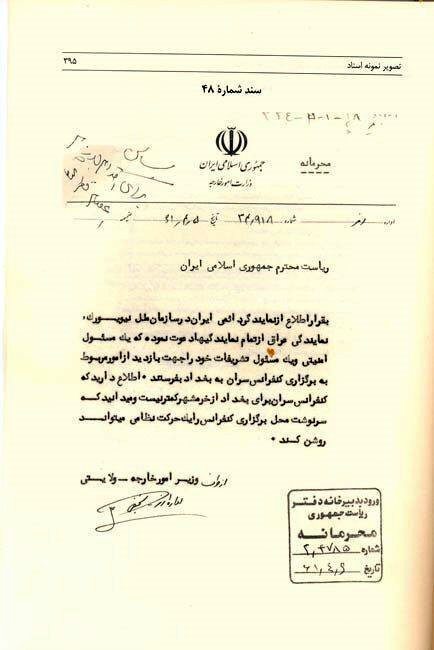 تصویر نمونه اسناد
۳۹۵
سند شمارهٔ ۴۸
جمهوری اسلامی ایران
وزارت امور خارجه
محرمانه
سپاس
برای
اداره
شماره ۳۴٫۹۱۸ تاریخ ۶۱٫۴٫۵
ریاست محترم جمهوری اسلامی ایران
بقرار اطلاع از نمایندگی دائمی ایران در سازمان ملل نیویورک،
نمایندگی عراق از تمام نمایندگیها دعوت نموده که یک مسئول
امنیتی ویک مسئول تشریفات خود را جهت بازدید از امور مربوط
به برگزاری کنفرانس سران به بغداد بفرستند ۰ اطلاع دارید که
کنفرانس سران برای بغداد از خرمشهر کمتر نیست و میدانید کـه
سرنوشت محل برگزاری کنفرانس را یک حرکت نظامی میتوانـد
روشن کند ۰
از طرف وزیر امور خارجه ــ ولایتی
ورود بدبیرخانه دفتر
ریاست جمهوری
محرمانه
شماره ۲٫۴۷۸۵
تاریخ ۶۱٫۴٫۶